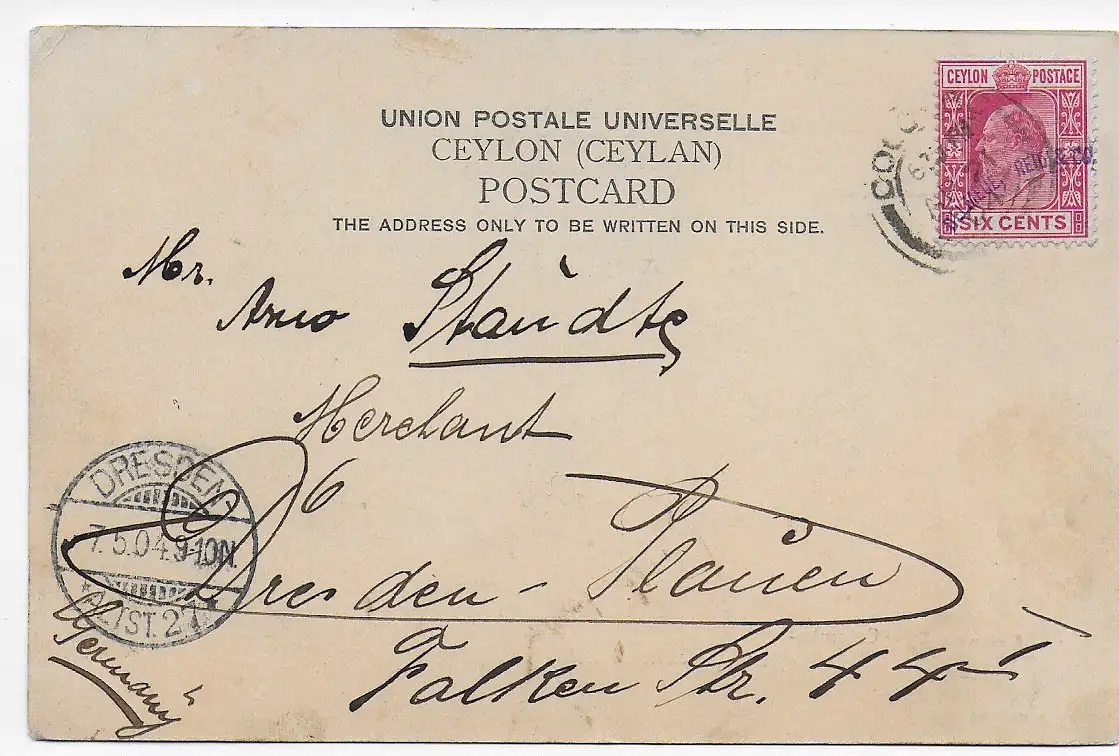 CEYLON POSTAGE
SIX CENTS
UNION POSTALE UNIVERSELLE
CEYLON (CEYLAN)
POSTCARD
THE ADDRESS ONLY TO BE WRITTEN ON THIS SIDE.
Mr.
Arno Staudte
Merchant
Dresden - Plauen
Falken Str. 44
Germany
DRESDEN
7.5.04.9-10N.
*ALTST. 2